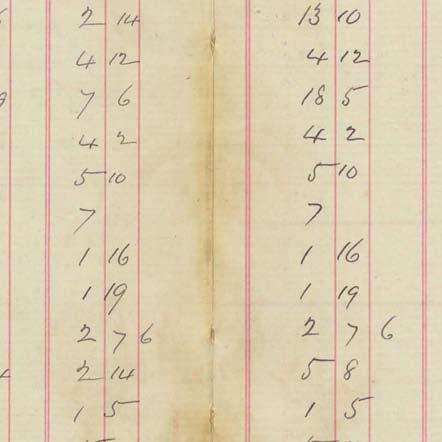 2 14 13 10
4 12 4 12
7 6 18 5
4 2 4 2
5 10 5 10
7 7
1 16 1 16
1 19 1 19
2 7 6 2 7 6
2 14 5 8
1 5 1 5